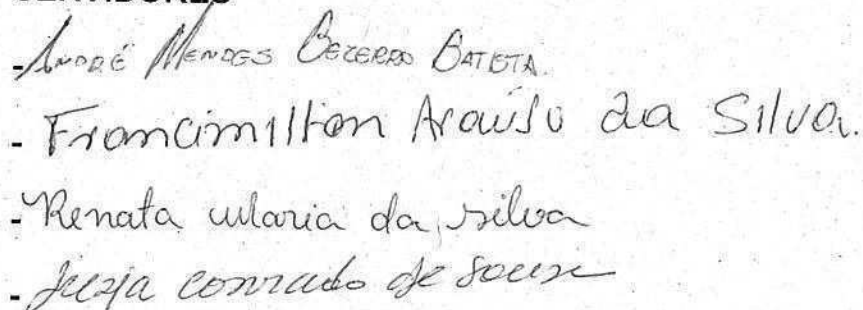 SERVIDORES
- André Mendes Bezerra Batista
- Francimilton Araujo da Silva.
- Renata Maria da silva
- conrado de Souza